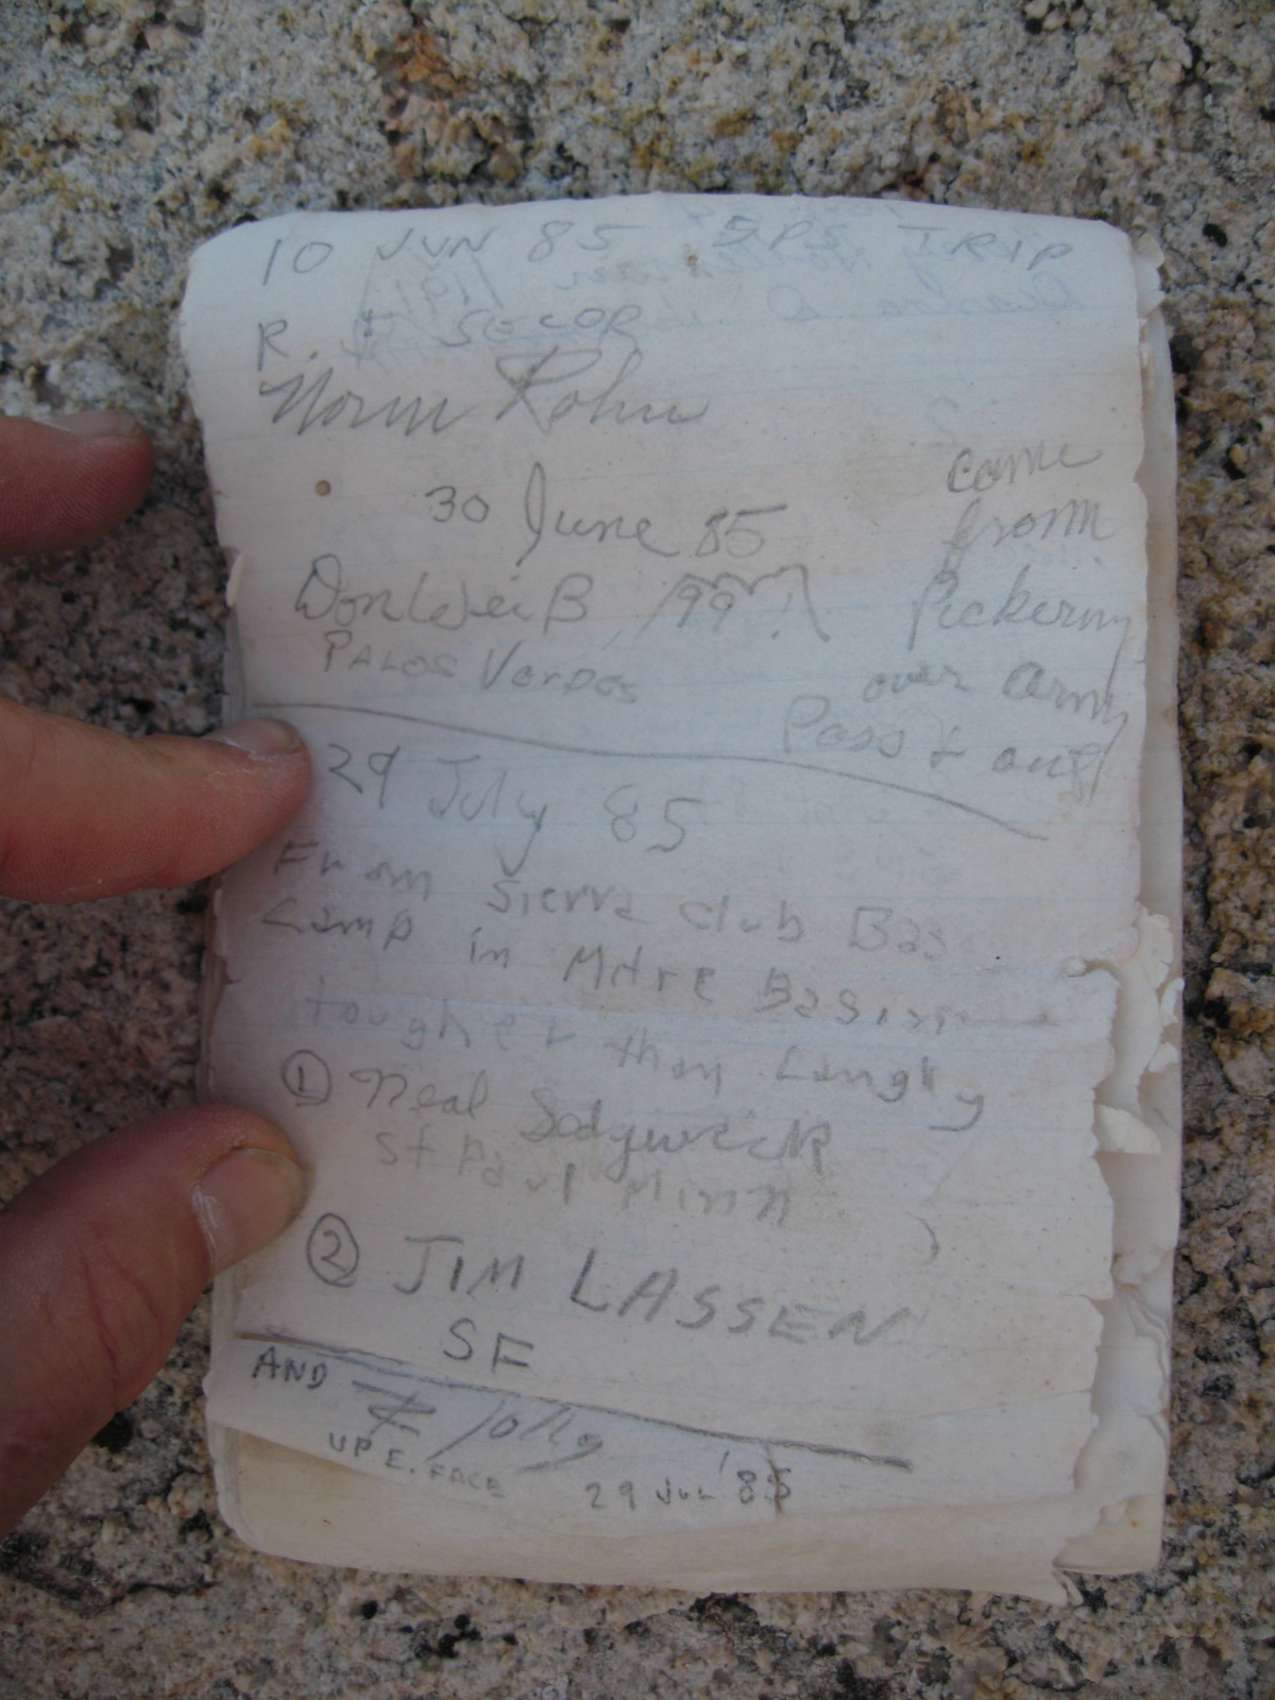 10 JUN 85 SPS TRIP
R. J SECOR
Norm Rohn
30 June 85
Don Weiß, 199
PALOS VerDes
came
from
Pickering
over army
Pass & out
29 July 85
From Sierra Club Bas
Camp in Mitre Basin
tougher than Langly
① Neal Sodgwick
St Paul Minn
② JIM LASSEN
SF
AND
Jolly
UP E. FACE 29 JUL '85